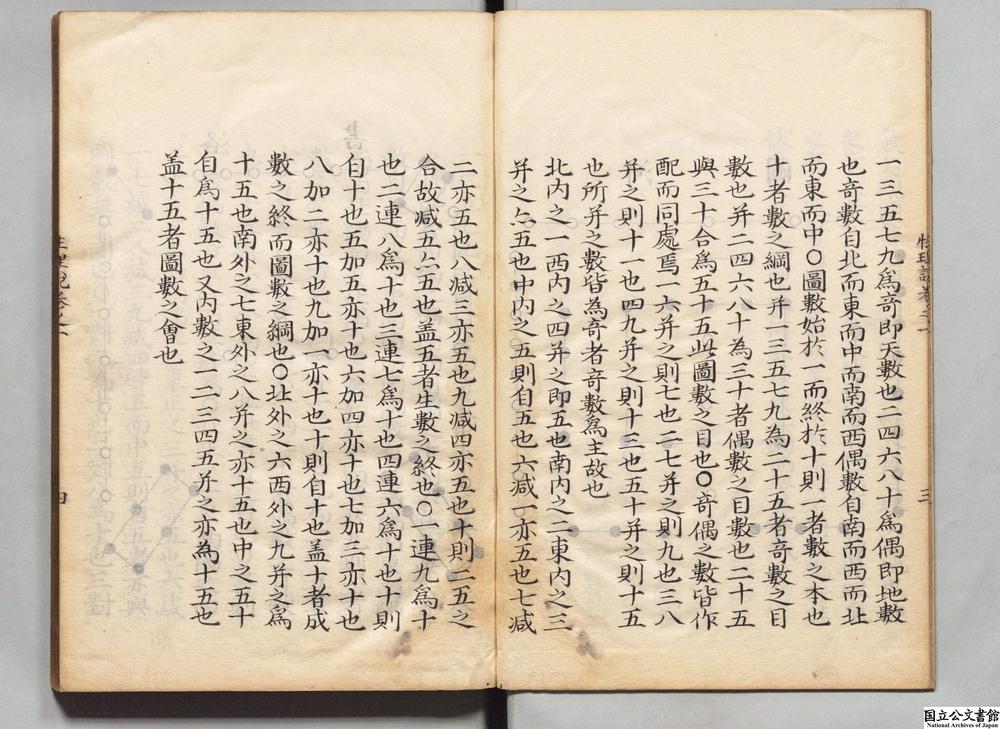 一三五七九為竒即天數也二四六八十為偶即地數
也竒數自北而東而中而南而西偶數自南而西而北
而東而中○圖數始於一而終於十則一者數之本也
十者數之綱也并一三五七九為二十五者竒數之目
數也并二四六八十為三十者偶數之目數也二十五
與三十合為五十五此圖數之目也○竒偶之數皆作
配而同處焉一六并之則七也二七并之則九也三八
并之則十一也四九并之則十三也五十并之則十五
也所并之數皆為竒者竒數為主故也
北内之一西内之四并之即五也南内之二東内之三
并之亦五也中内之五則自五也六減一亦五也七減
二亦五也八减三亦五也九减四亦五也十則二五之
合故减五亦五也盖五者生數之終也○一連九爲十
也二連八爲十也三連七爲十也四連六爲十也十則
自十也五加五亦十也六加四亦十也七加三亦十也
八加二亦十也九加一亦十也十則自十也盖十者成
數之終而圖數之綱也○北外之六西外之九并之爲
十五也南外之七東外之八并之亦十五也中之五十
自爲十五也又内數之一二三四五并之亦為十五也
盖十五者圖數之會也
性理說卷之一
三
性理說卷之一
四
国立公文書館
National Archives of Japan